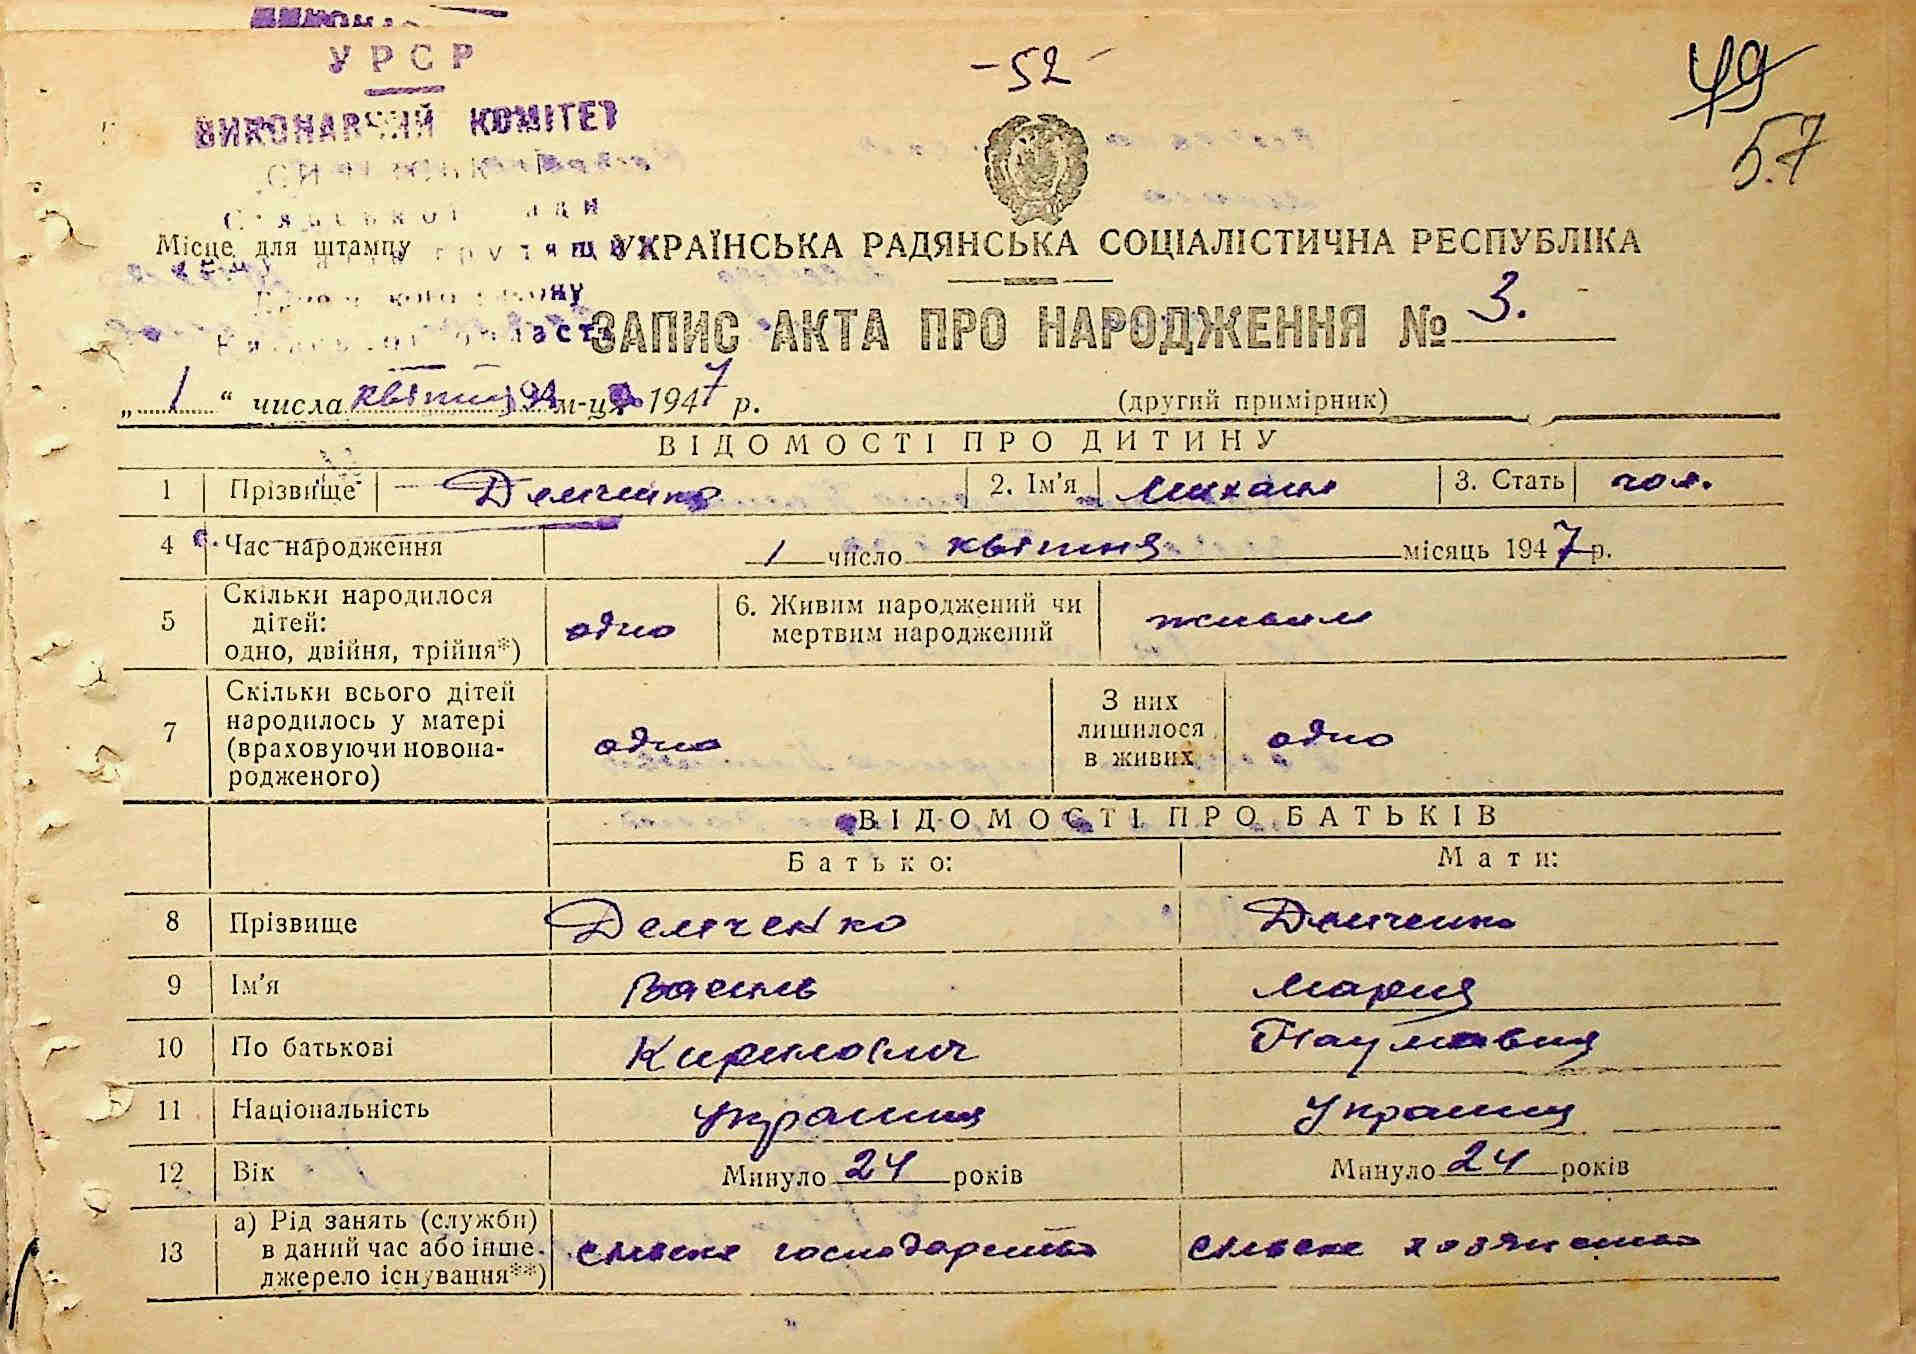 УРСР
-52-
49
57
ВИКОНАВЧИЙ КОМІТЕТ
Місце для штампу
УКРАЇНСЬКА РАДЯНСЬКА СОЦІАЛІСТИЧНА РЕСПУБЛІКА
ЗАПИС АКТА ПРО НАРОДЖЕННЯ № 3.
„ 1 “ числа квітня м-ця 1947 р. (другий примірник)
ВІДОМОСТІ ПРО ДИТИНУ
1 Прізвище Демченко 2. Ім'я Михаил 3. Стать чол.
4 Час народження 1 число квітня місяць 1947 р.
5 Скільки народилося дітей: одно, двійня, трійня*) одно 6. Живим народжений чи мертвим народжений живим
7 Скільки всього дітей народилось у матері (враховуючи новонародженого) одно З них лишилося в живих одно
ВІДОМОСТІ ПРО БАТЬКІВ
Батько: Мати:
8 Прізвище Демченко Демченко
9 Ім'я Василь Мария
10 По батькові Кирилович Наумовна
11 Національність Украинец Украинка
12 Вік Минуло 24 років Минуло 24 років
13 а) Рід занять (служби) в даний час або інше джерело існування**) сільске господарство сільске хозяйство